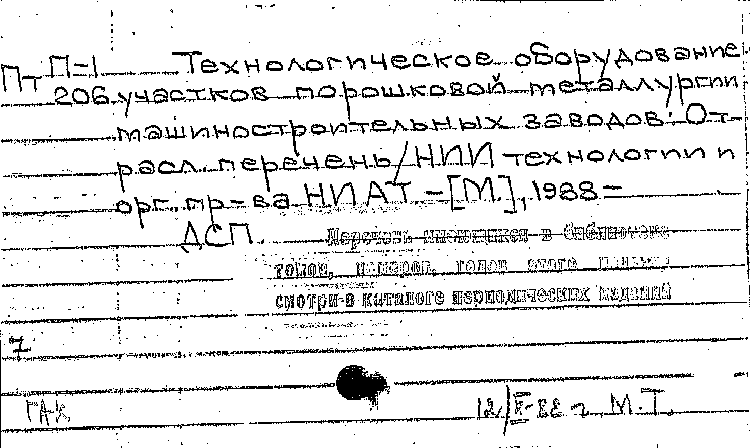 Пт П-1 Технологическое оборудование
206 участков порошковой металлургии
машиностроительных заводов: От-
расл. перечень/НИИ технологии и
орг. пр-ва НИАТ -[М.], 1988-
ДСП.
Перечень имеющихся в библиотеке
томов, номеров, годов этого издания
смотри в каталоге периодических изданий
1
ГАК 12/ -88 г. М.Т.